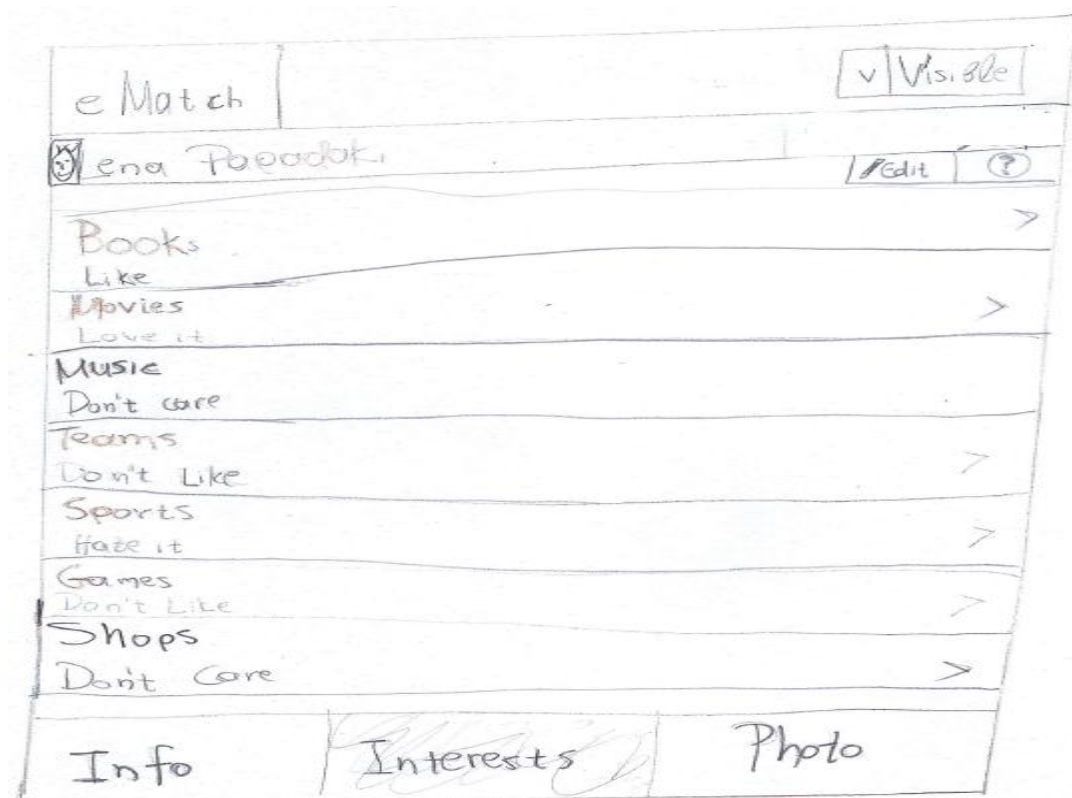 e Match
v Visible
ena Papadaki
Edit ?
Books >
Like
Movies >
Love it
Music
Don't care
Teams >
Don't Like
Sports >
Hate it
Games >
Don't Like
Shops >
Don't Care
Info Interests Photo